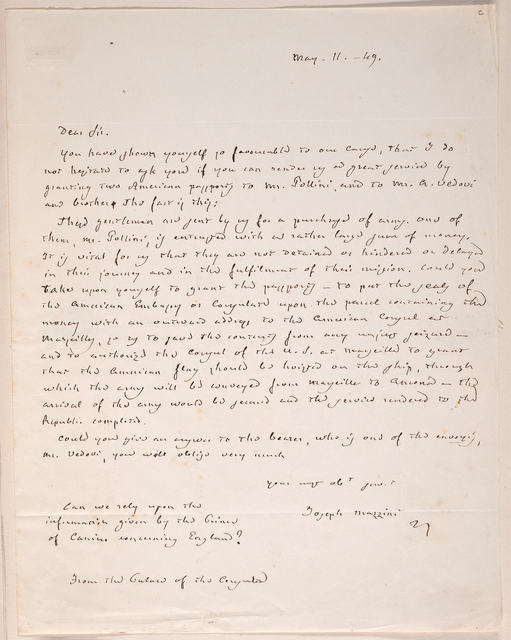 c
May. 11. -49.
Dear Sir.
You have shown yourself so favourable to our cause, that I do
not hesitate to ask you if you can render us a great service by
granting two American passports to Mr. Pollini, and to Mr. A. Vedovi
and brother. The fact is this:
These gentlemen are sent by us for a purchase of arms. One of
them, Mr. Pollini, is entrusted with a rather large sum of money.
It is vital for us that they are not detained or hindered or delayed
in their journey and in the fulfilment of their mission. Could you
take upon yourself to grant the passports — to put the seals of
the American Embassy or Consulate upon the parcel containing the
money with an outward address to the American Consul at
Marseilles, so as to save the contents from any unjust seizure —
and to authorize the Consul of the U.S. at Marseille to grant
that the American flag should be hoisted on the ship, through
which the arms will be conveyed from Marseille to Ancona — the
arrival of the arms would be secured and the service rendered to the
Republic completed.
Could you give an answer to the bearer, who is one of the envoys,
Mr. Vedovi, you would oblige very much
Your mst obt serv.t
Joseph Mazzini
Can we rely upon the
information given by the Prince
of Canino concerning England?
From the Palace of the Consulta